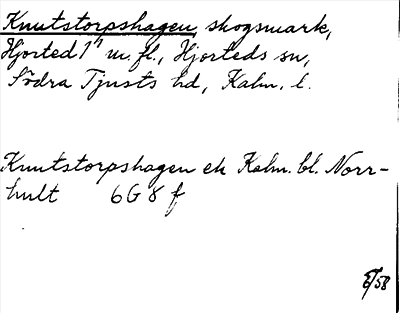 Knutstorpshagen, skogsmark,
Hjorted 1¹¹ m. fl., Hjorteds sn,
Södra Tjusts hd, Kalm. l.
Knutstorpshagen ek Kalm. bl. Norr-
hult 6G8f